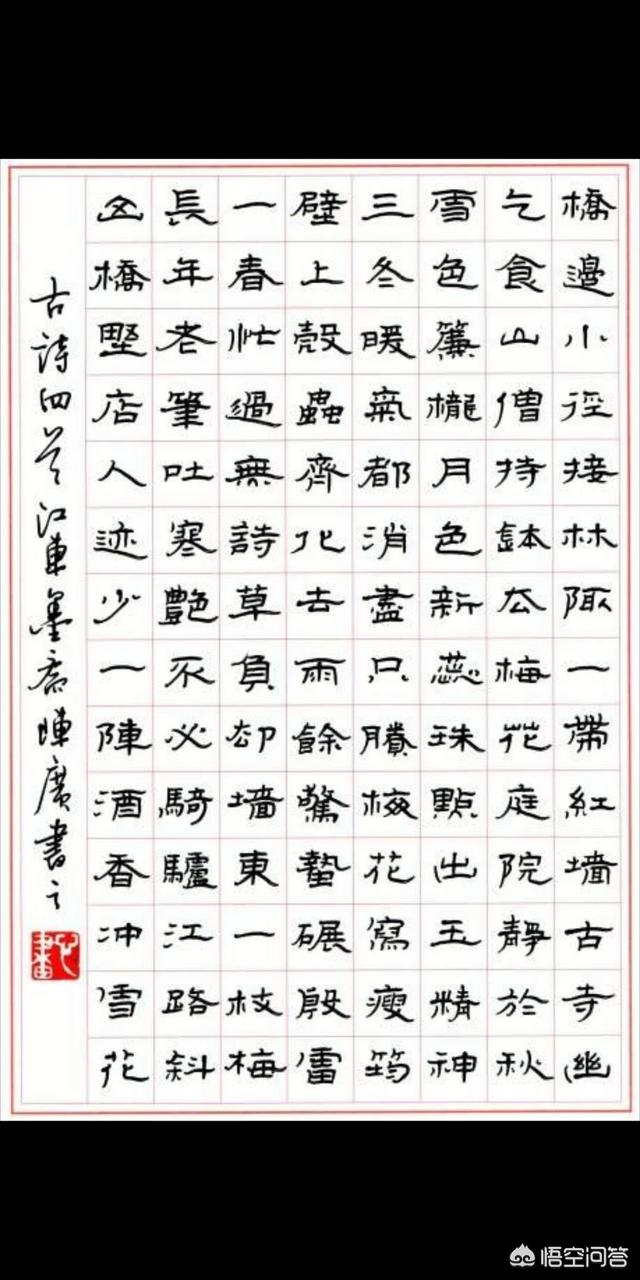 橋邊小徑接林陬一帶紅墻古寺幽
乞食山僧持缽厺梅花庭院靜於秋
雪色簾櫳月色新蕊珠點出玉精神
三冬暖氣都消盡只賸梅花寫瘦筠
壁上殼蟲齊化去雨餘驚蟄碾殷雷
一春忙過無詩草負却墙東一枝梅
長年老筆吐寒艷不必騎驢江路斜
橋墅店人迹少一陣酒香冲雪花
古詩四首江東墨齋陳廣書之
悟空问答